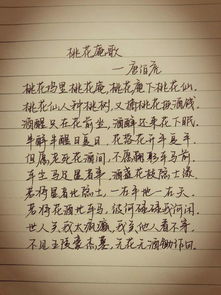 桃花庵歌
—唐伯虎
桃花坞里桃花庵,桃花庵下桃花仙.
桃花仙人种桃树,又摘桃花换酒钱.
酒醒只在花前坐,酒醉还来花下眠.
半醉半醒日复日,花落花开年复年.
但愿老死花酒间,不愿鞠躬车马前.
车尘马足显者事,酒盏花枝隐士缘.
若将显者比隐士,一在平地一在天.
若将花酒比车马,彼何碌碌我何闲.
世人笑我太疯癫,我笑他人看不穿.
不见五陵豪杰墓,无花无酒锄作田.